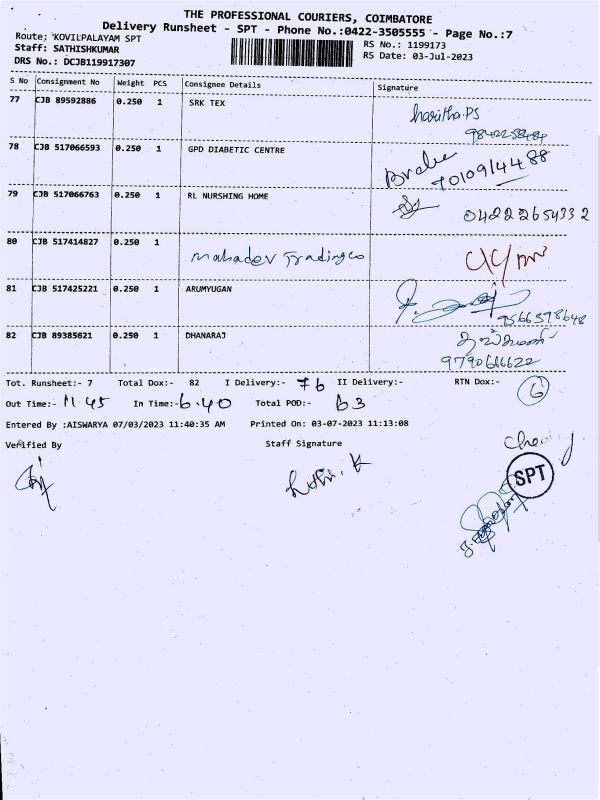 THE PROFESSIONAL COURIERS, COIMBATORE
Delivery Runsheet - SPT - Phone No.:0422-3505555 - Page No.:7
Route; KOVILPALAYAM SPT
RS No.: 1199173
Staff: SATHISHKUMAR
RS Date: 03-Jul-2023
DRS No.: DCJB119917307
S No Consignment No Weight PCS Consignee Details Signature
77 CJB 89592886 0.250 1 SRK TEX
haritha.PS
78 CJB 517066593 0.250 1 GPD DIABETIC CENTRE
79 CJB 517066763 0.250 1 RL NURSHING HOME
0422 2654332
80 CJB 517414827 0.250 1 Mahadev Trading co
81 CJB 517425221 0.250 1 ARUMYUGAN
9566378648
82 CJB 89385621 0.250 1 DHANARAJ
9790666622
Tot. Runsheet:- 7 Total Dox:- 82 I Delivery:- 76 II Delivery:- RTN Dox:- 6
Out Time:- 11.45 In Time:- 6.40 Total POD:- 63
Entered By :AISWARYA 07/03/2023 11:40:35 AM Printed On: 03-07-2023 11:13:08
Verified By Staff Signature
SPT